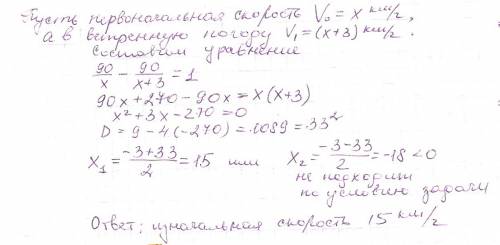 Пусть первоначальная скорость V₀ = x км/г,
а в ветренную погоду V₁ = (x+3) км/г.
Составим уравнение
90/x - 90/(x+3) = 1
90x + 270 - 90x = x(x+3)
x² + 3x - 270 = 0
D = 9 - 4(-270) = 1089 = 33²
x₁ = (-3+33)/2 = 15 или x₂ = (-3-33)/2 = -18 < 0
не подходит
по условию задачи
Ответ: изначальная скорость 15 км/г